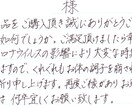 様
品をご購入頂き誠にありがとうご
如何でしょうか。ご注文頂いました商
ロウイルスの影響により大変な時
ますので、くれぐれもお体の調子を崩さ
祈り申し上げます。再度ご検がありま
は何卒宜しくお願い致します。